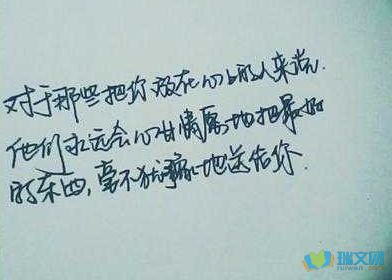 对于那些把你放在心上的人来说.
他们永远会心甘情愿地把最好
的东西,毫不犹豫地送给你.
瑞文网
ruiwen.com